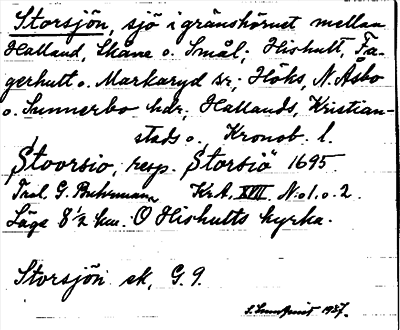 Storsjön, sjö i gränshörnet mellan
Halland, Skåne o. Smål.; Hishult, Fa-
gerhult o. Markaryd sr; Höks, N. Åsbo
o. Sunnerbo hdr; Hallands, Kristian-
stads o. Kronob. l.
Stoorsio, resp. Storsiö 1695.
Trol. G. Buhrmann KrA. XVII N:o 1. o. 2.
Läge 8 1/2 km. O Hishults kyrka.
Storsjön sk, G. 9.
S. Sundquist 1937.